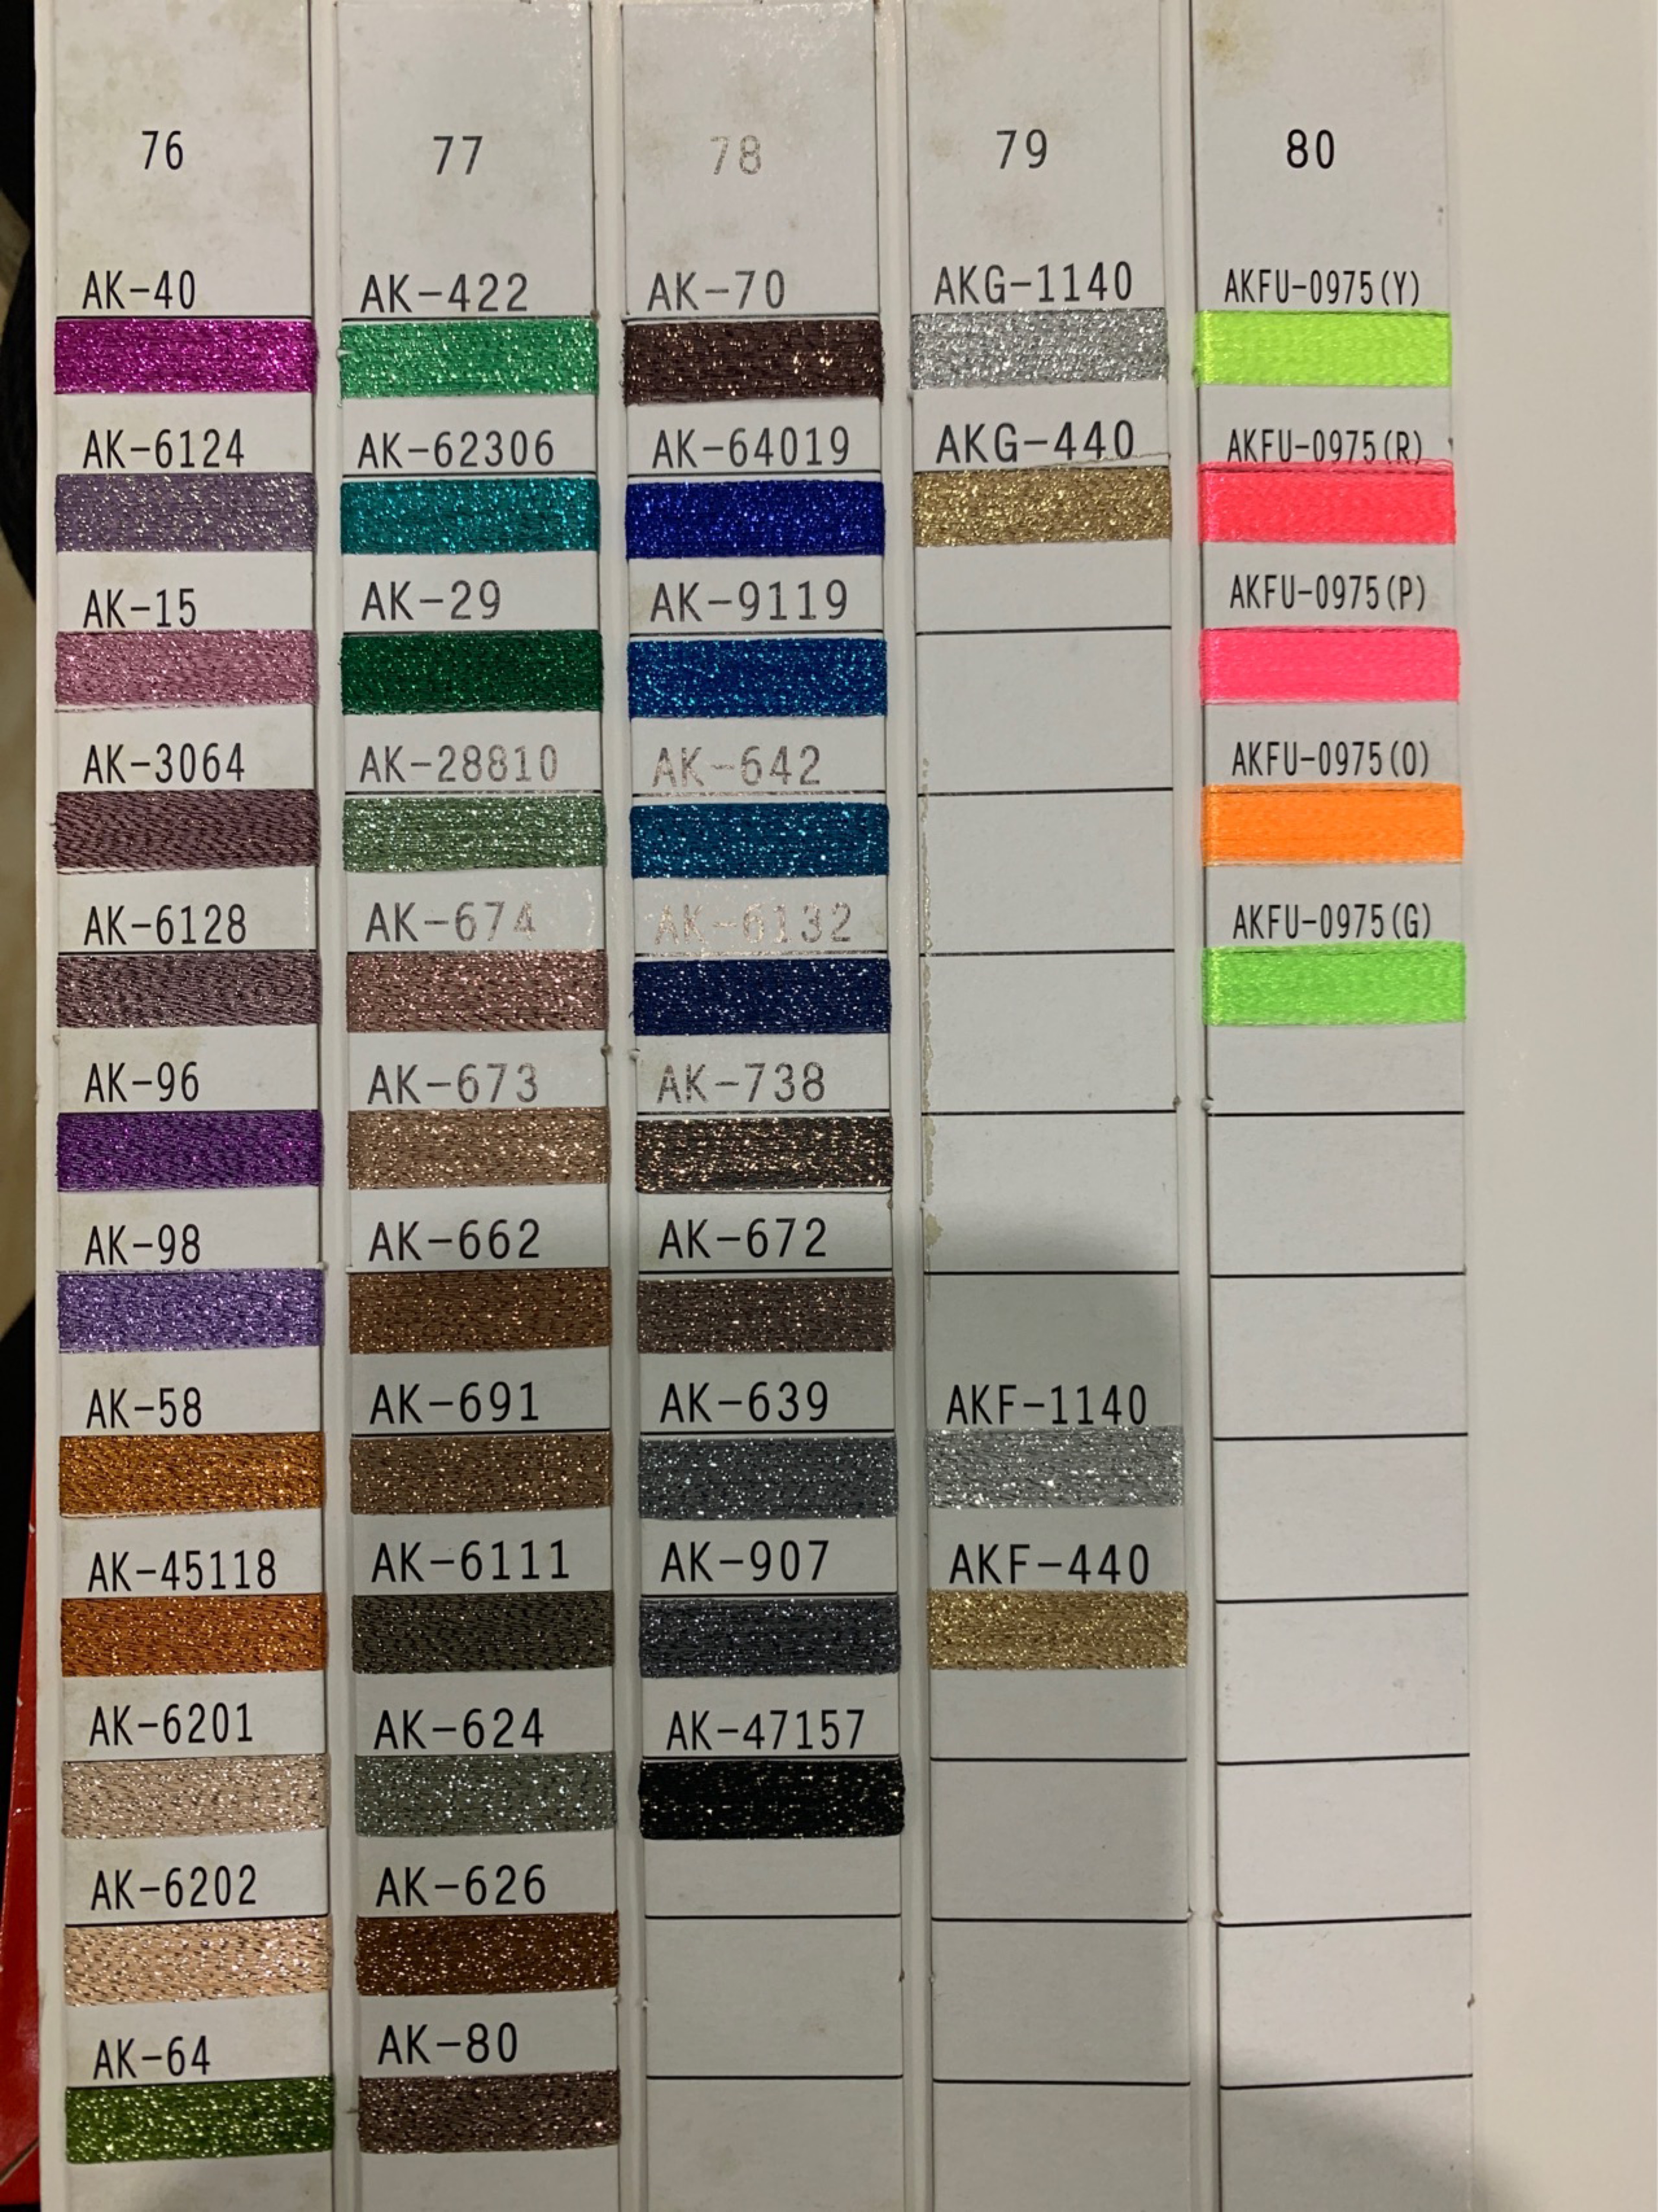 76
AK-40
AK-6124
AK-15
AK-3064
AK-6128
AK-96
AK-98
AK-58
AK-45118
AK-6201
AK-6202
AK-64
77
AK-422
AK-62306
AK-29
AK-28810
AK-674
AK-673
AK-662
AK-691
AK-6111
AK-624
AK-626
AK-80
78
AK-70
AK-64019
AK-9119
AK-642
AK-6132
AK-738
AK-672
AK-639
AK-907
AK-47157
79
AKG-1140
AKG-440
AKF-1140
AKF-440
80
AKFU-0975(Y)
AKFU-0975(R)
AKFU-0975(P)
AKFU-0975(O)
AKFU-0975(G)